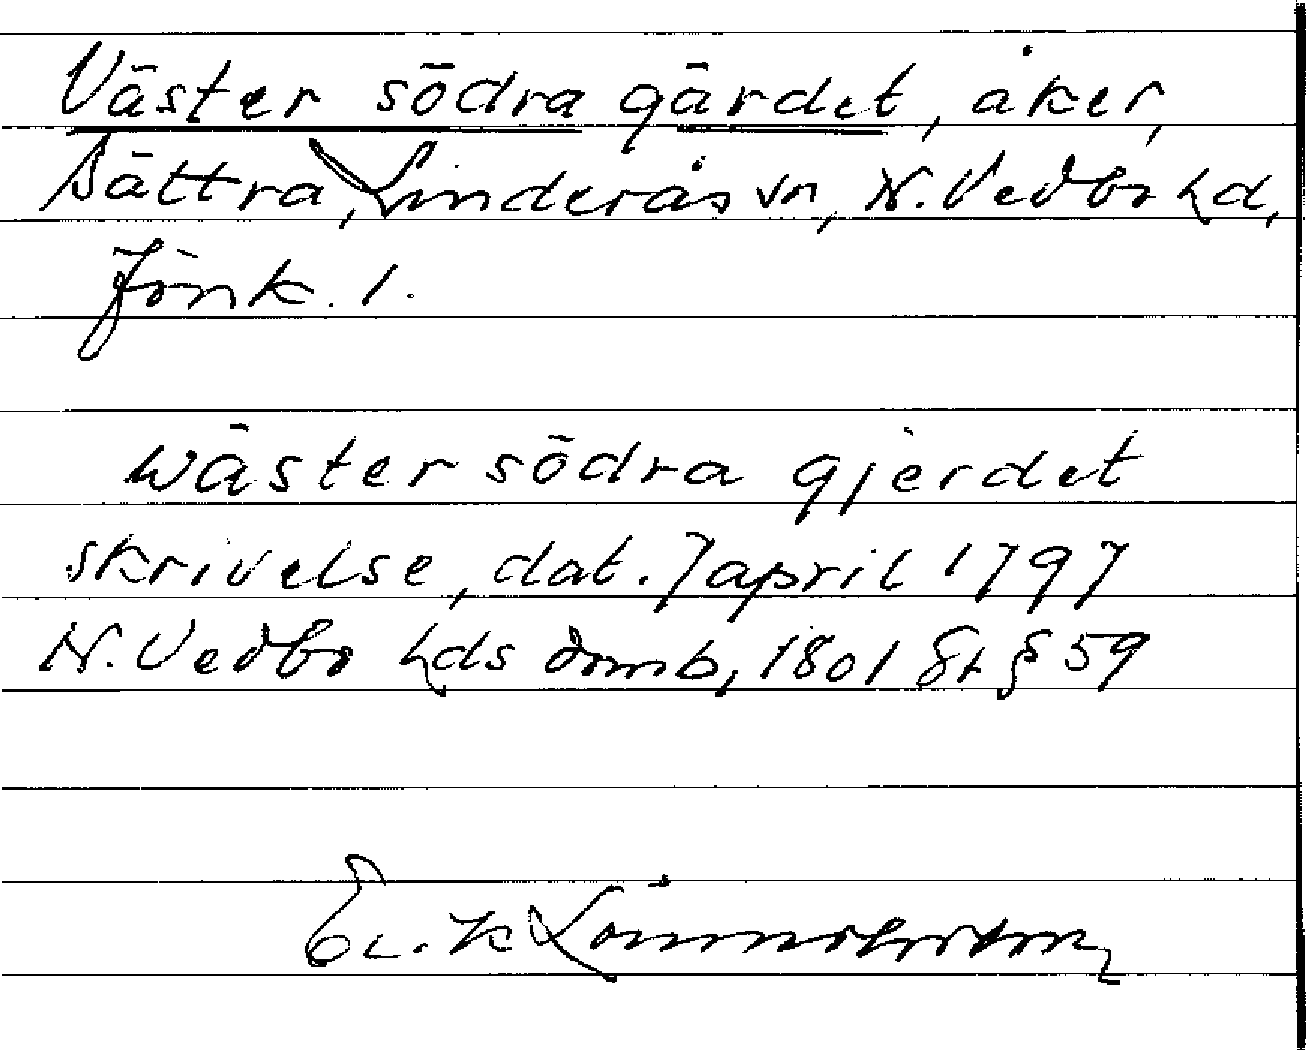 Väster södra gärdet, åker,
Sättra, Linderås sn, N. Vedbo hd,
Jönk. l.
Wäster södra gjerdet
skrivelse, dat. 7 april 1797
N. Vedbo hds domb, 1801 St § 59